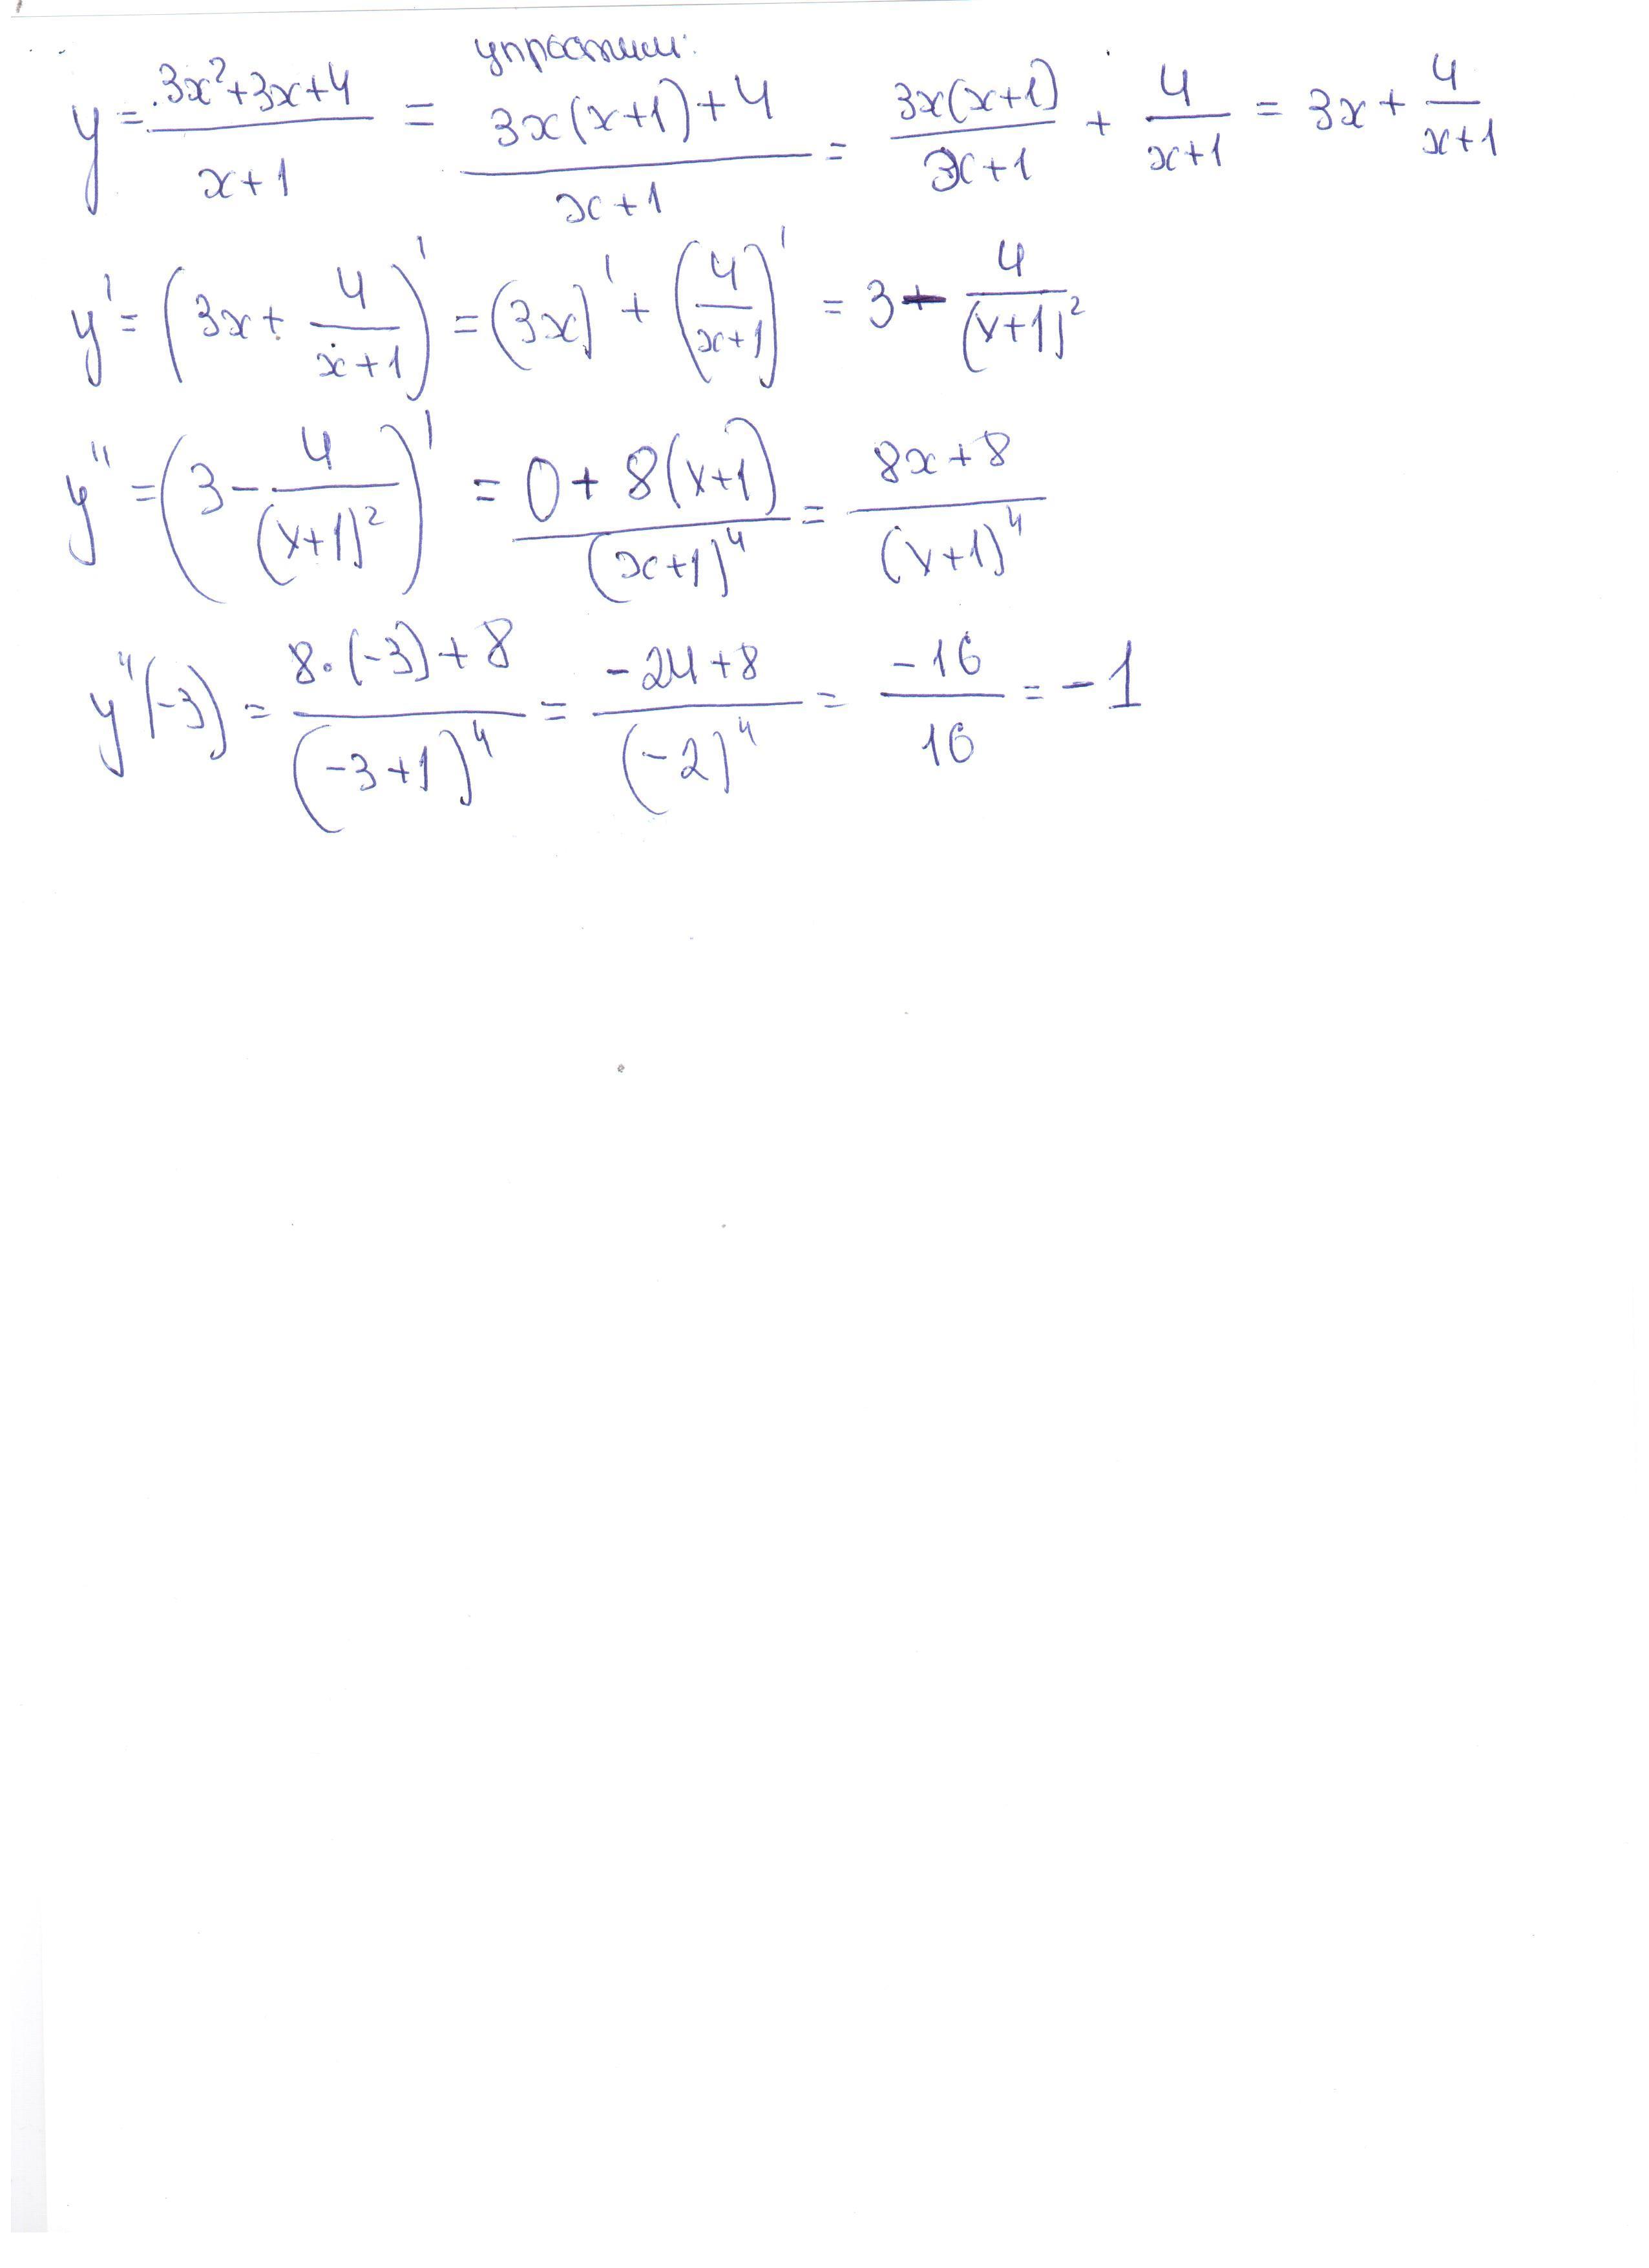 упростим:
y = (3x²+3x+4)/(x+1) = (3x(x+1)+4)/(x+1) = (3x(x+1))/(x+1) + 4/(x+1) = 3x + 4/(x+1)
y' = (3x + 4/(x+1))' = (3x)' + (4/(x+1))' = 3 - 4/(x+1)²
y'' = (3 - 4/(x+1)²)' = (0 + 8(x+1))/(x+1)⁴ = (8x+8)/(x+1)⁴
y''(-3) = (8·(-3)+8)/(-3+1)⁴ = (-24+8)/(-2)⁴ = -16/16 = -1